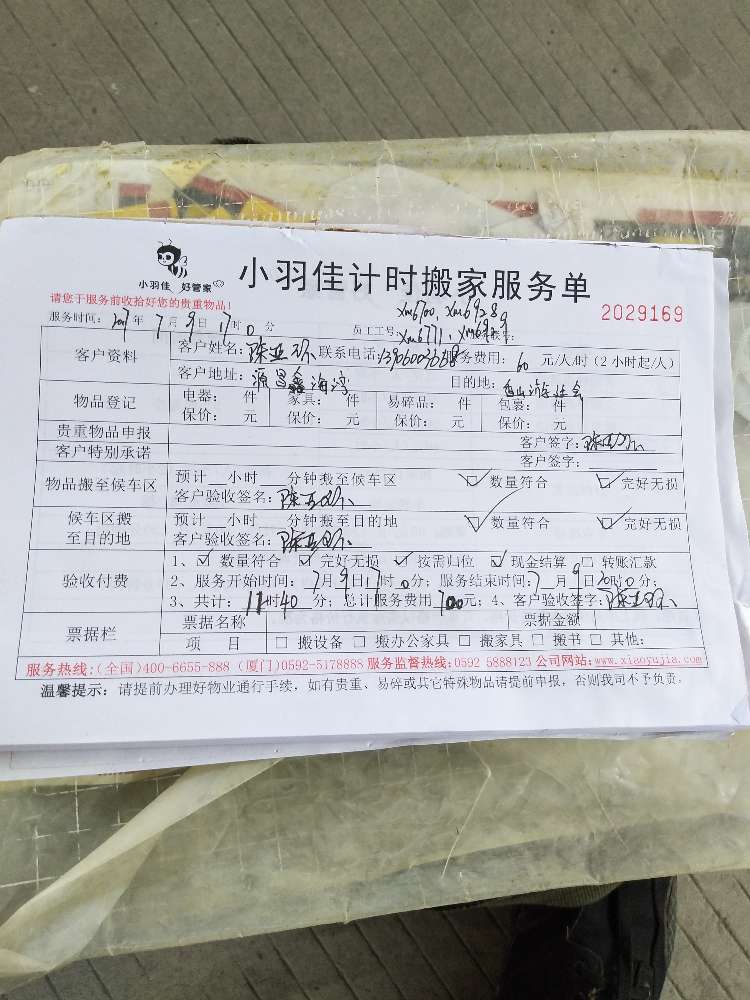 小羽佳 好管家
小羽佳计时搬家服务单
2029169
请您于服务前收拾好您的贵重物品!
服务时间: 2017年7月9日17时0分 员工工号: xm6700, xm6928, xm6771,
客户资料 客户姓名: 联系电话: 服务费用: 60 元/人/时(2小时起/人)
客户地址: 源昌鑫海湾 目的地:
物品登记 电器: 件 家具: 件 易碎品: 件 包裹: 件
保价: 元 保价: 元 保价: 元 保价: 元
贵重物品申报 客户签字:
客户特别承诺 客户签字:
物品搬至候车区 预计__小时__分钟搬至候车区 ☑数量符合 ☑完好无损
客户验收签名:
候车区搬至目的地 预计__小时__分钟搬至目的地 ☑数量符合 ☑完好无损
客户验收签名:
验收付费 1、☑数量符合 ☑完好无损 ☑按需归位 ☑现金结算 □转账汇款
2、服务开始时间: 7月9日17时0分; 服务结束时间: 7月9日20时0分;
3、共计: 11时40分; 总计服务费用700元; 4、客户验收签字:
票据栏 票据名称 票据金额
项 目 □搬设备 □搬办公家具 □搬家具 □搬书 □其他:
服务热线:(全国)400-6655-888 (厦门)0592-5178888 服务监督热线:0592 5888123 公司网站:www.xiaoyujia.com
温馨提示: 请提前办理好物业通行手续, 如有贵重、易碎或其它特殊物品请提前申报, 否则我司不予负责。